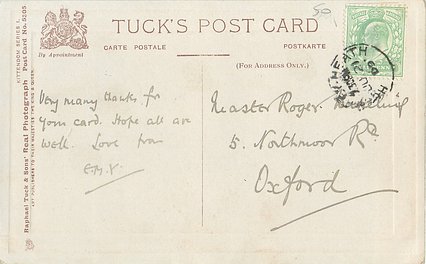 TUCK'S POST CARD
CARTE POSTALE
POSTKARTE
By Appointment
(FOR ADDRESS ONLY.)
50
Raphael Tuck & Sons' Real Photograph Post Card No. 5205
Very many thanks for
your card. Hope all are
well. Love from
E.M.V.
Master Roger
5. Northmoor Rd.
Oxford